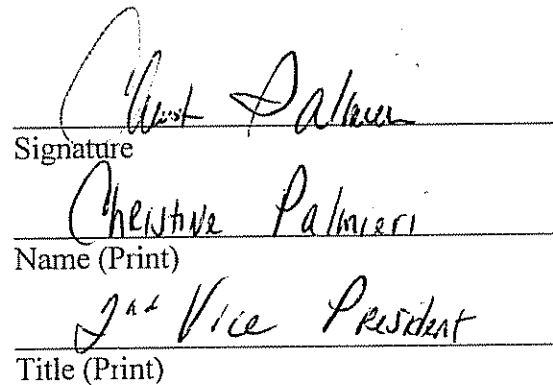 Signature
Christine Palmieri
Name (Print)
2nd Vice President
Title (Print)